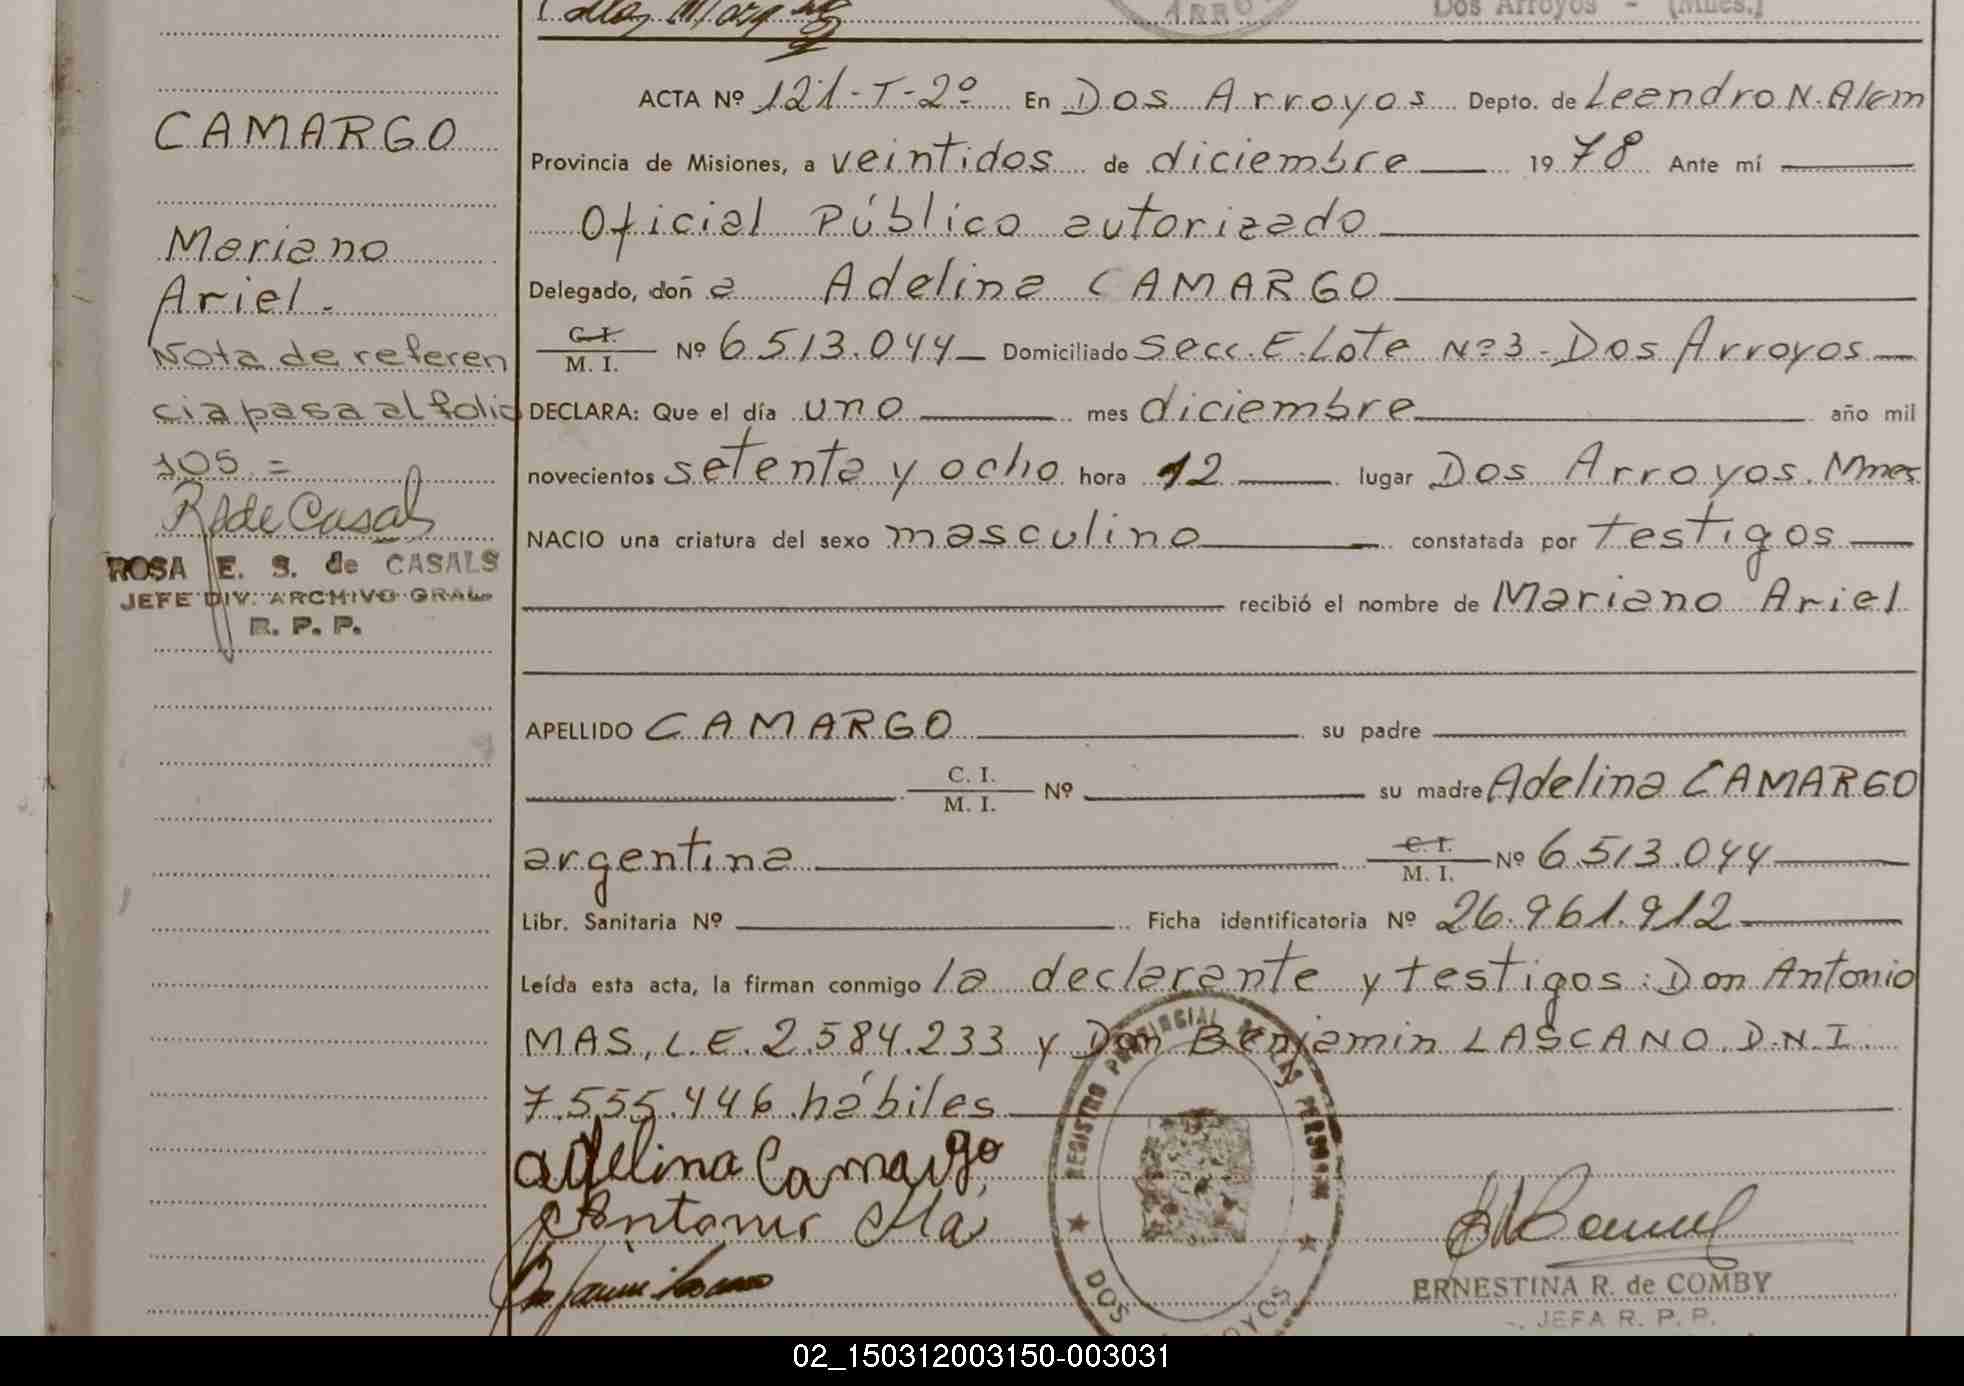 Dos Arroyos - (Mnes.)
ARRO
ACTA Nº 121-T-2º En Dos Arroyos Depto. de Leandro N. Alem
CAMARGO
Provincia de Misiones, a veintidos de diciembre 1978 Ante mí
Oficial Público autorizado
Mariano
Ariel.-
Delegado, doña Adelina CAMARGO
C. I.
M. I. Nº 6.513.044 Domiciliado Secc. E. Lote Nº 3 - Dos Arroyos
Nota de referen
cia pasa al folio
105 =
DECLARA: Que el día uno mes diciembre año mil
novecientos setenta y ocho hora 12 lugar Dos Arroyos. Mnes
R S de Casals
ROSA E. S. de CASALS
JEFE DIV. ARCHIVO GRAL.
R. P. P.
NACIO una criatura del sexo masculino constatada por testigos
recibió el nombre de Mariano Ariel
APELLIDO CAMARGO su padre
C. I.
M. I. Nº su madre Adelina CAMARGO
argentina C. I.
M. I. Nº 6.513.044
Libr. Sanitaria Nº Ficha identificatoria Nº 26.961.912
Leída esta acta, la firman conmigo la declarante y testigos: Don Antonio
MAS, L.E. 2.584.233 y Don Benjamin LASCANO. D.N.I.
7.555.446 hábiles
adelina Camargo
Antonio Mas
REGISTRO PROVINCIAL DE LAS PERSONAS
DOS ARROYOS
ERNESTINA R. de COMBY
JEFA R. P. P.
02_150312003150-003031